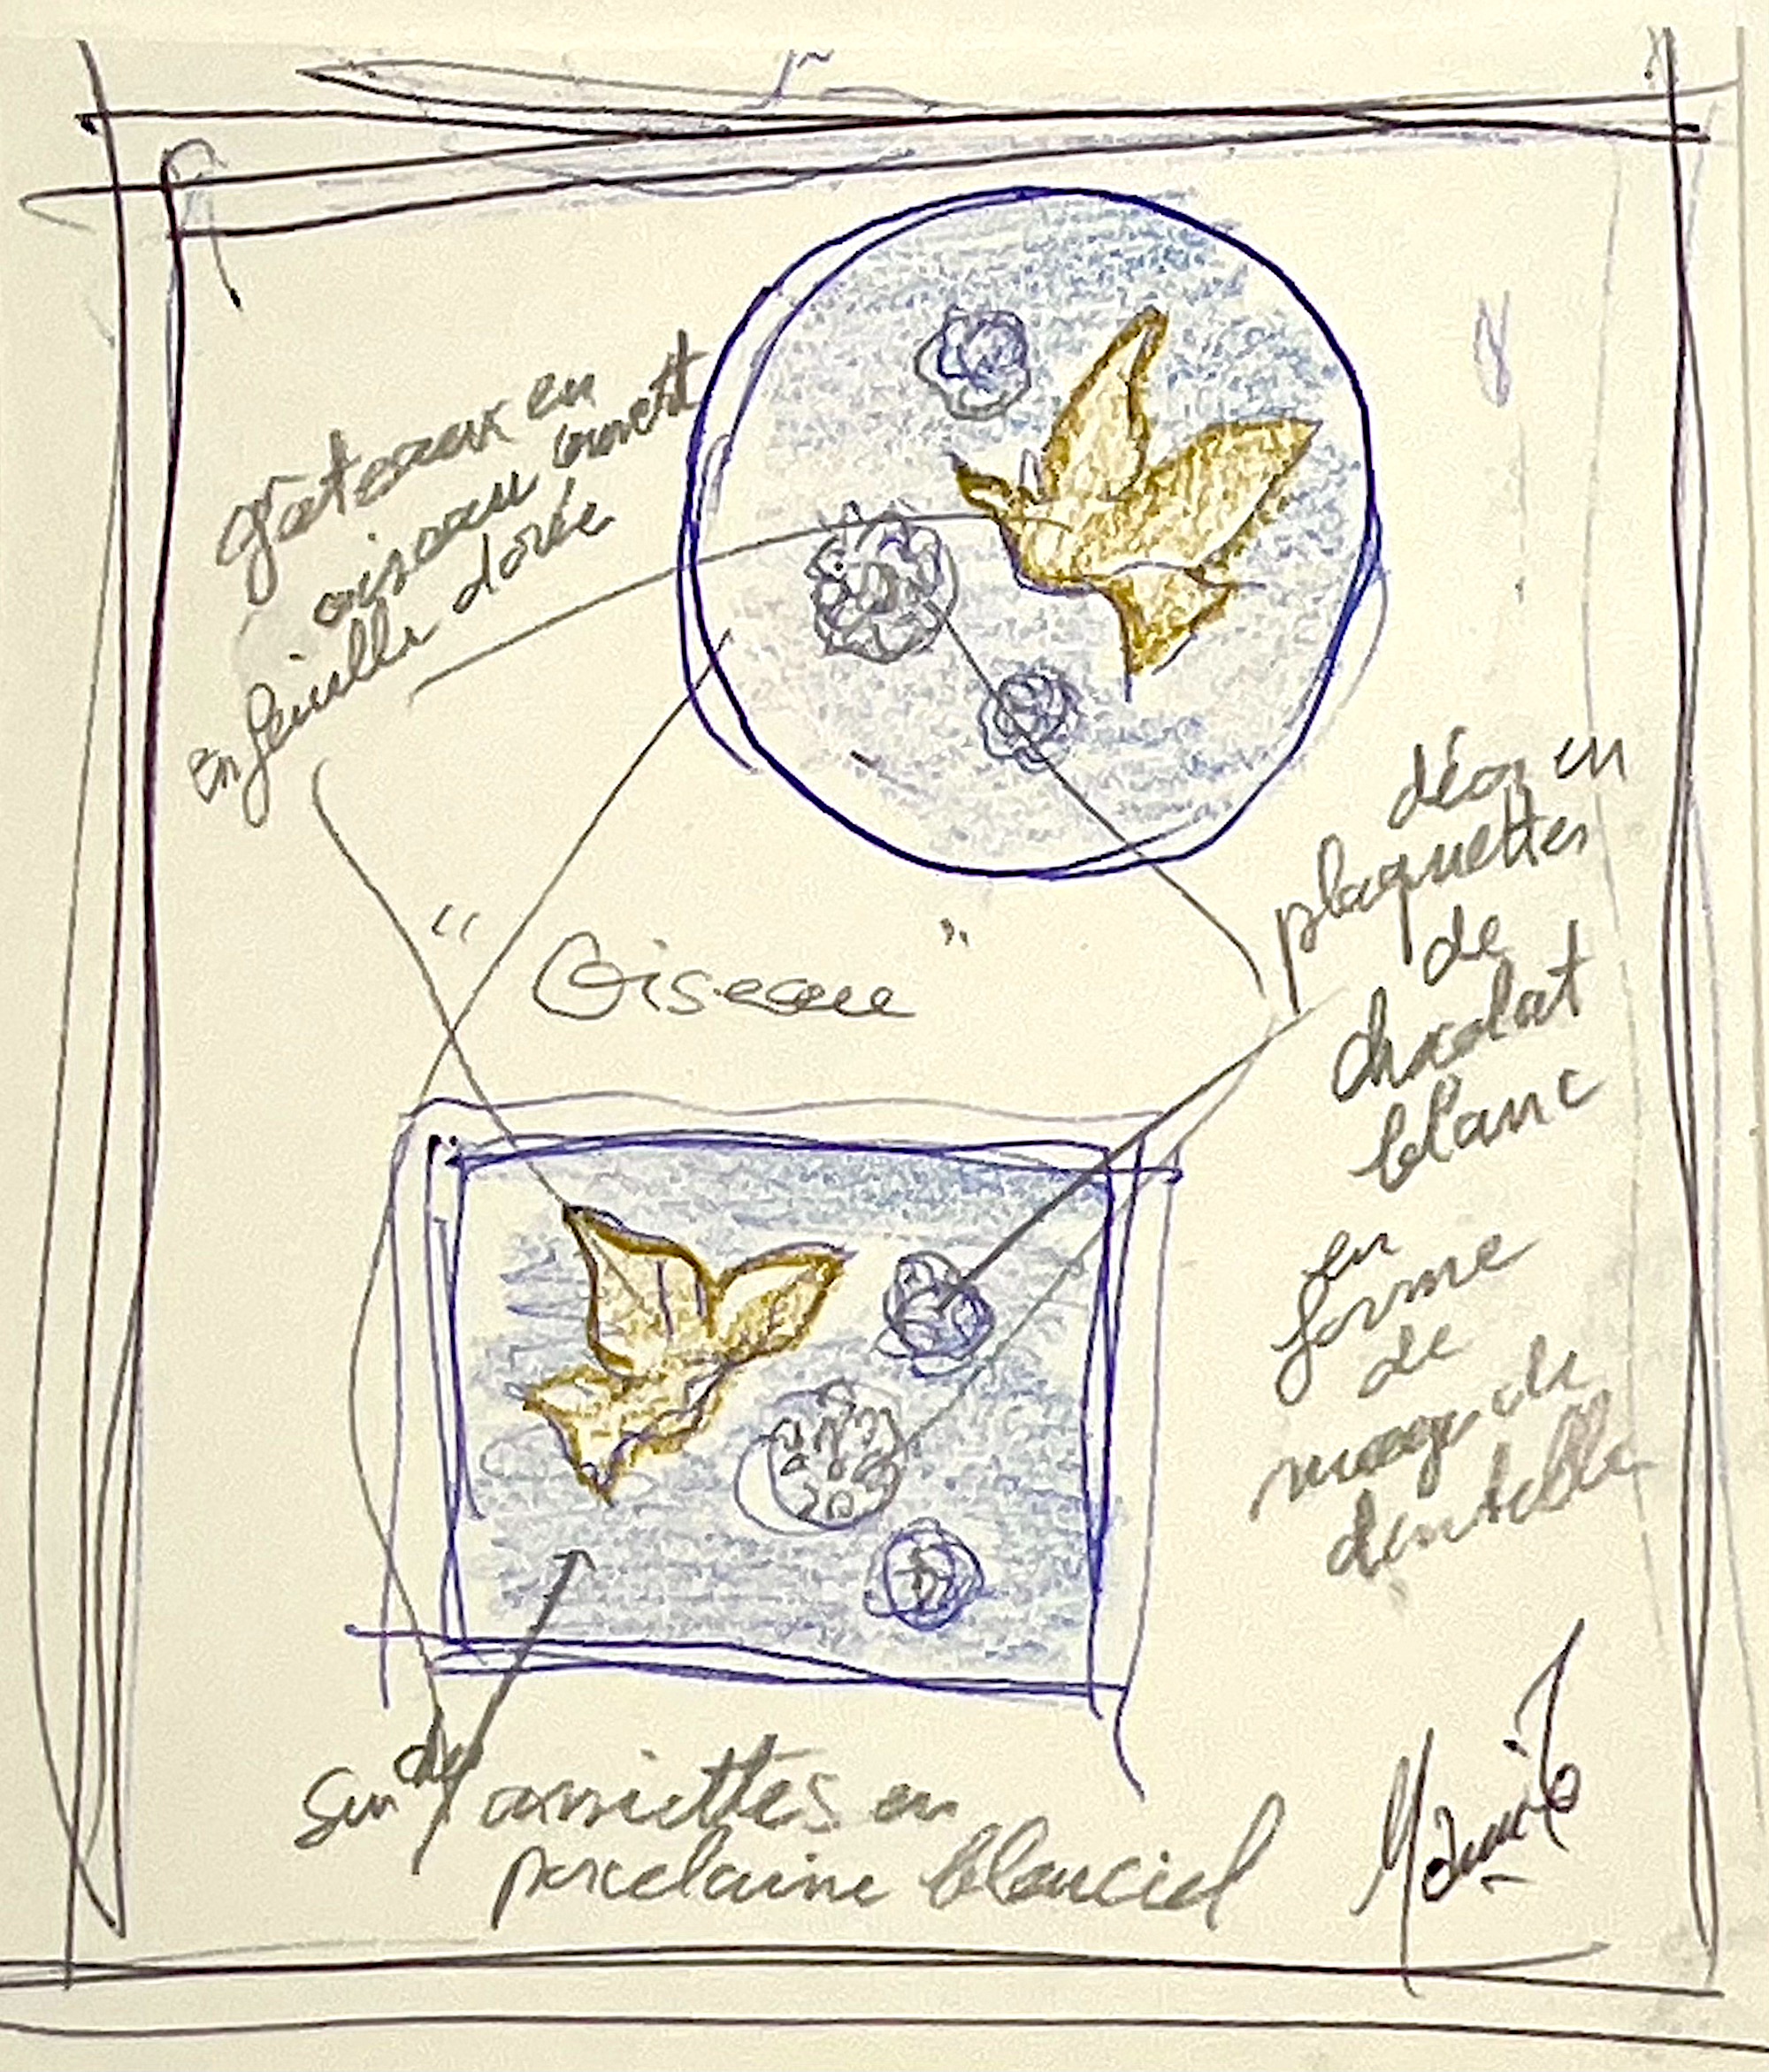 gâteaux en
oiseau ouvert
en feuille dorée
" Oiseau "
décor en
plaquettes
de
chocolat
blanc
en
forme
de
nuage de
dentelle
Sur des assiettes en
porcelaine bleu ciel